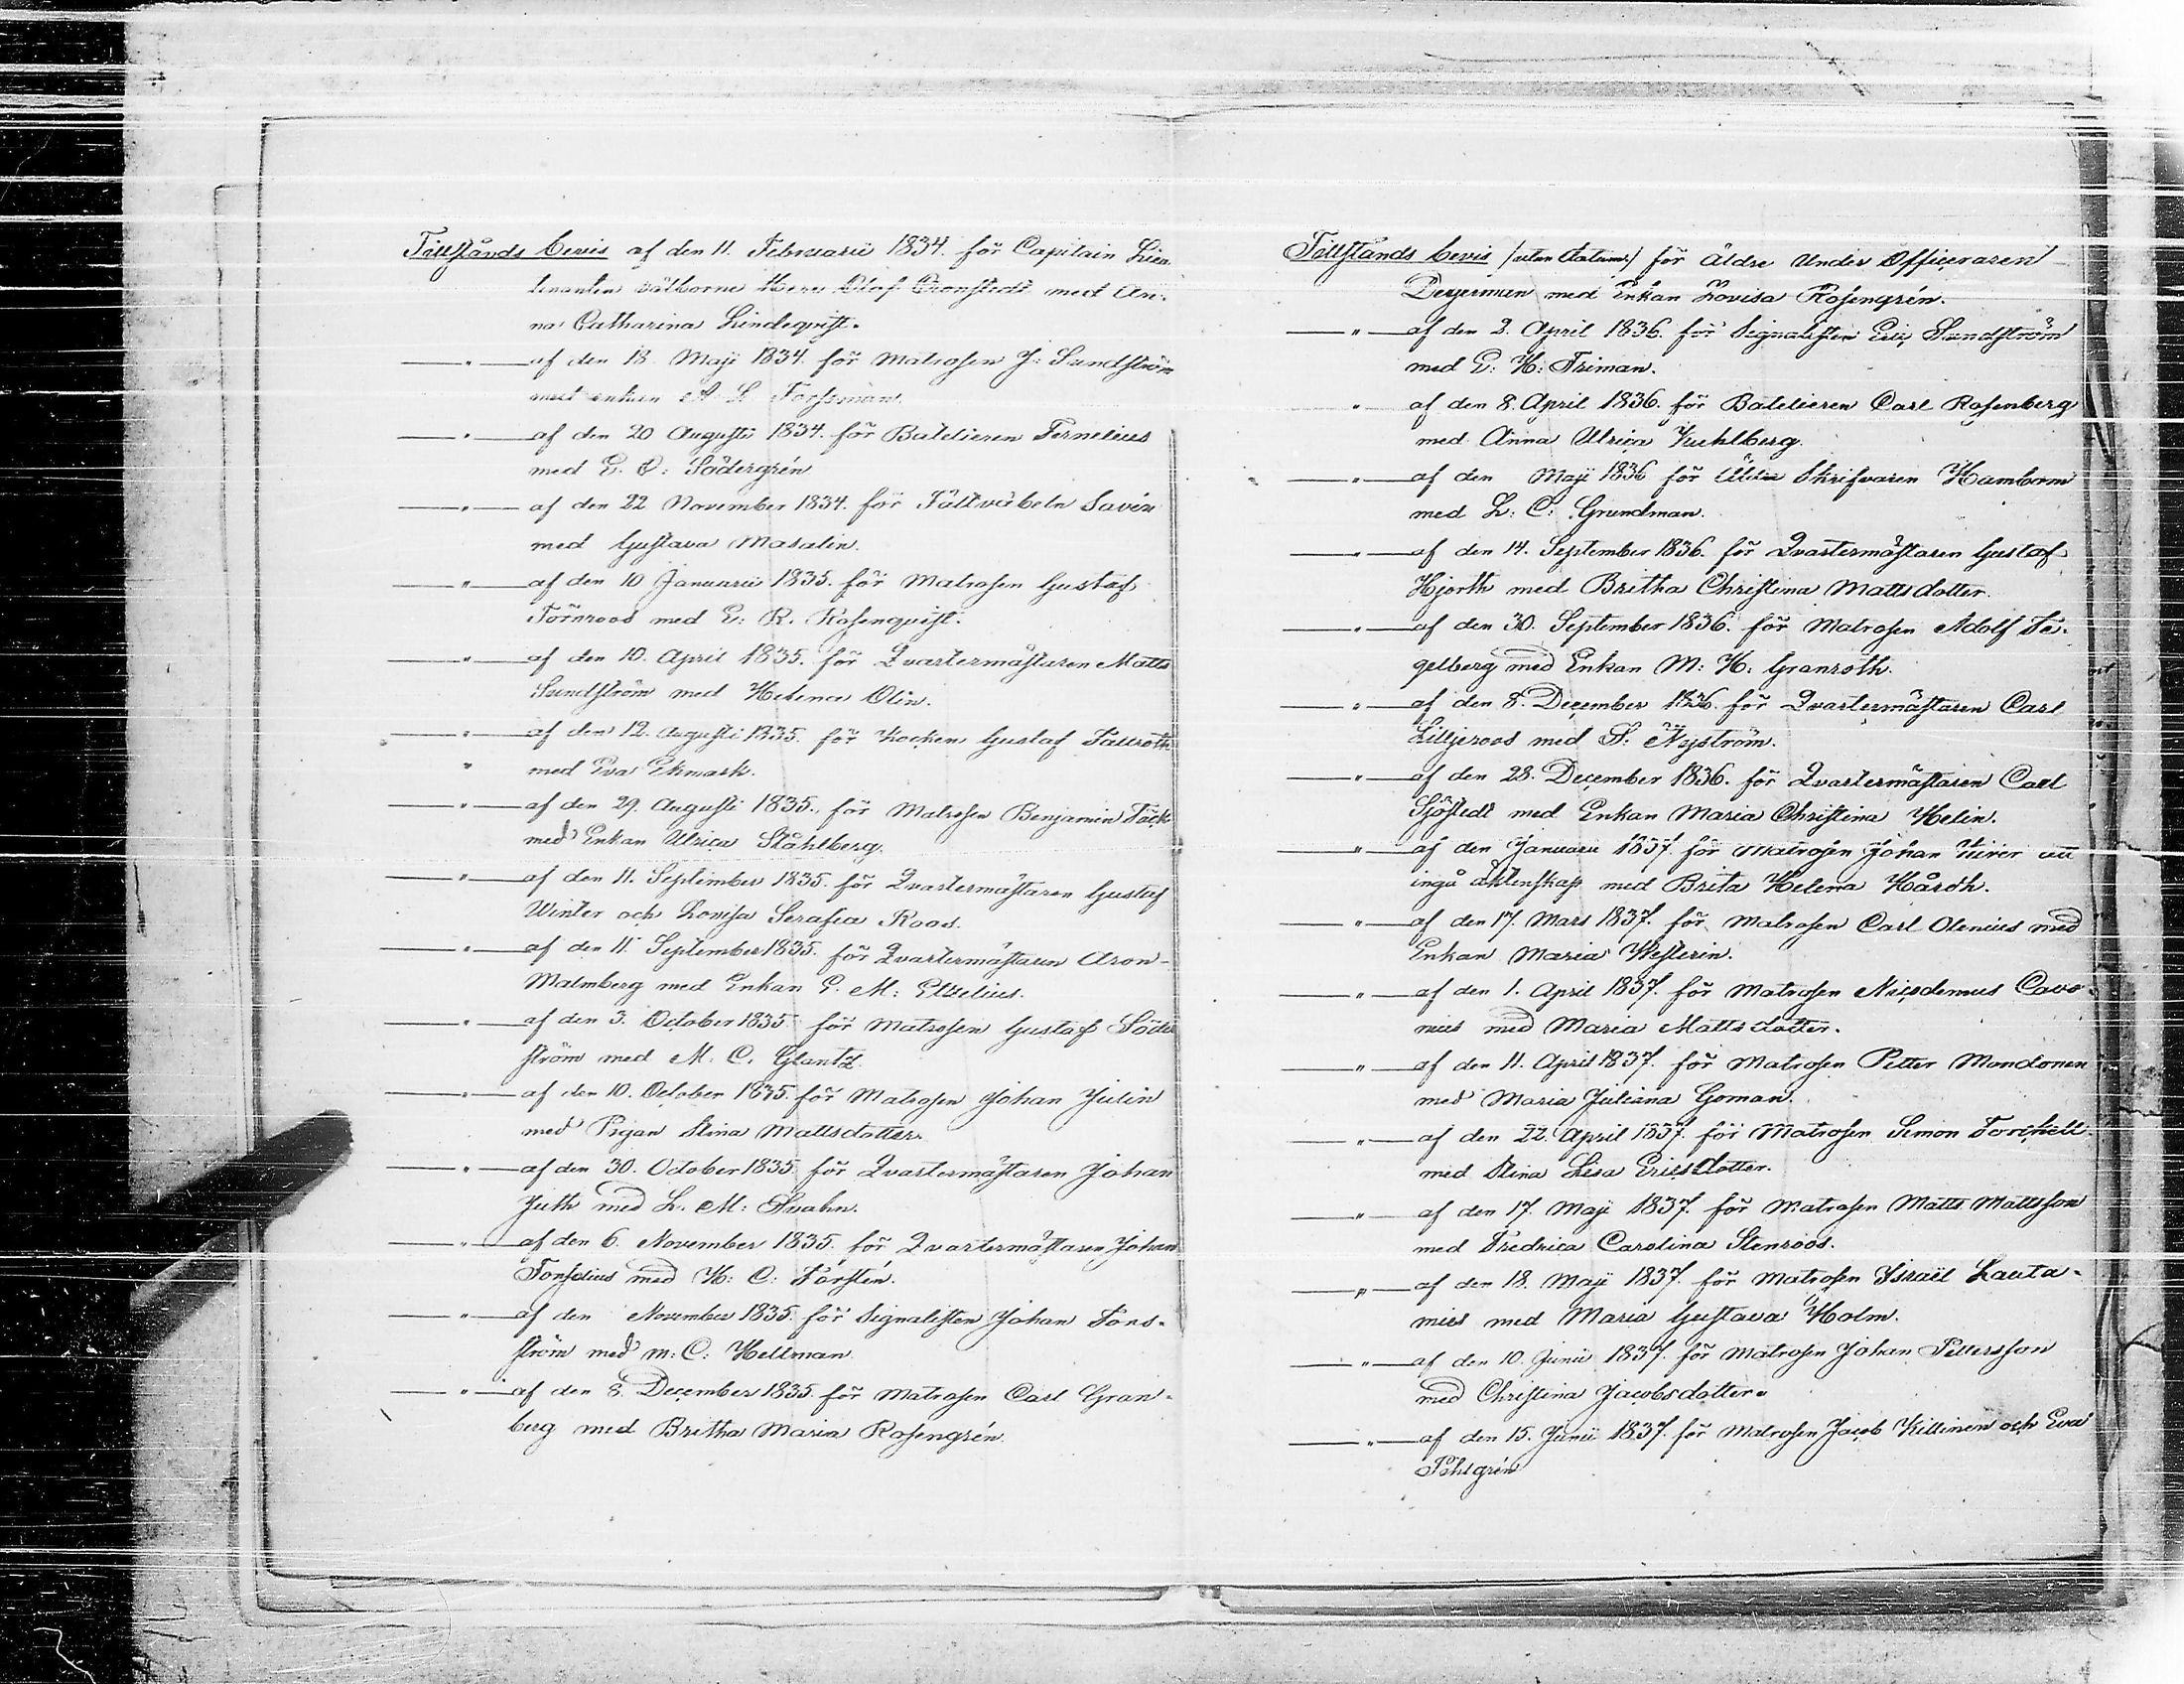 Tillstånds bevis af den 11. Februarii 1834. för Capitain Lieu
tenanten välborne Herr Olof Cronstedt med An-
na Catharina Lindeqvist.
— " — af den 18. Maji 1834. för Matrosen J: Sundström
med enkan A L Forssman.
— " — af den 20 Augusti 1834. för Batelieren Fernelius
med E. C: Södergrén
— " — af den 22 November 1834. för Fältväbeln Savén
med Gustava Masalin.
— " — af den 10 Januarii 1835. för Matrosen Gustaf
Törnroos med E: R. Rosenqvist.
— " — af den 10. April 1835. för Qvartermästaren Matts
Sundström med Helena Olin.
— " — af den 12. Augusti 1835. för Kocken Gustaf Tallroth
" med Eva Ekmark.
— " — af den 29. Augusti 1835. för Matrosen Benjamin Täck
med Enkan Ulrica Ståhlberg.
— " — af den 11. September 1835. för Qvartermästaren Gustaf
Winter och Lovisa Serafia Roos.
— " — af den 11. September 1835. för Qvartermästaren Aron
Malmberg med Enkan E. M: Etzelius.
— " — af den 3. October 1835. för Matrosen Gustaf Söder
ström med M. C. Glantz.
— " — af den 10. October 1835. för Matrosen Johan Julin
med Pigan Stina Mattsdotter.
— " — af den 30. October 1835. för Qvartermästaren Johan
Juth med L. M: Svahn.
— " — af den 6. November 1835. för Qvartermästaren Johan
Fonselius med H: C: Forstén.
— " — af den November 1835. för Signalisten Johan Fors-
ström med M: C: Hellman
— " — af den 8. December 1835. för Matrosen Carl Gran-
berg med Britha Maria Rosengrén.
Tillstånds bevis /utan datum:/ för Äldre Under Officeraren
Deyerman med Enkan Lovisa Rosengrén.
— " — af den 2. April 1836. för Signalisten Eric Sundström
med E: H: Friman.
" af den 8. April 1836. för Batelieren Carl Rosenberg
med Anna Ulrica Kuhlberg.
— " — af den Maji 1836 för Äldre Skrifvaren Hambom
med L: C: Grundman.
— " — af den 14. September 1836. för Qvartermästaren Gustaf
Hjorth med Britha Christina Mattsdotter.
— " — af den 30. September 1836. för Matrosen Adolf Te-
gelberg med Enkan M: H: Granroth.
— " — af den 8. December 1836. för Qvartermästaren Carl
Lilljeroos med S: Nyström.
— " — af den 28. December 1836. för Qvartermästaren Carl
Sjöstedt med Enkan Maria Christina Helin.
— " — af den Januarii 1837. för Matrosen Johan att
ingå äktenskap med Brita Helena Hårdh.
— " — af den 17. Mars 1837. för Matrosen Carl Olenius med
Enkan Maria Westerin.
— " — af den 1. April 1837. för Matrosen Nicodemus Cavo-
nius med Maria Mattsdotter.
— " — af den 11. April 1837. för Matrosen Petter Mondonen
med Maria Juliana Goman.
— " — af den 22. April 1837. för Matrosen Simon Torckell
med Stina Lisa Ericsdotter.
— " — af den 17. Maji 1837. för Matrosen Matts Mattsson
med Fredrica Carolina Stenroos.
— " — af den 18. Maji 1837. för Matrosen Israël Lauta-
mies med Maria Gustava Holm.
— " — af den 10. Junii 1837. för Matrosen Johan Pettersson
med Christina Jacobsdotter.
— " — af den 15. Junii 1837. för Matrosen Jacob Killinen och Eva
Pihlgrén